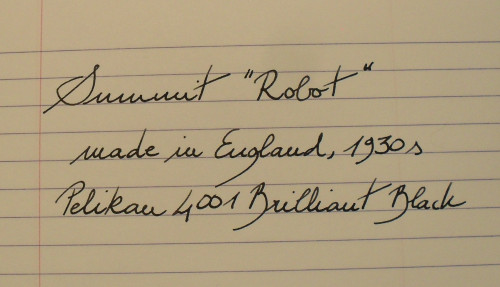 Summit "Robot"
made in England, 1930s
Pelikan 4001 Brilliant Black